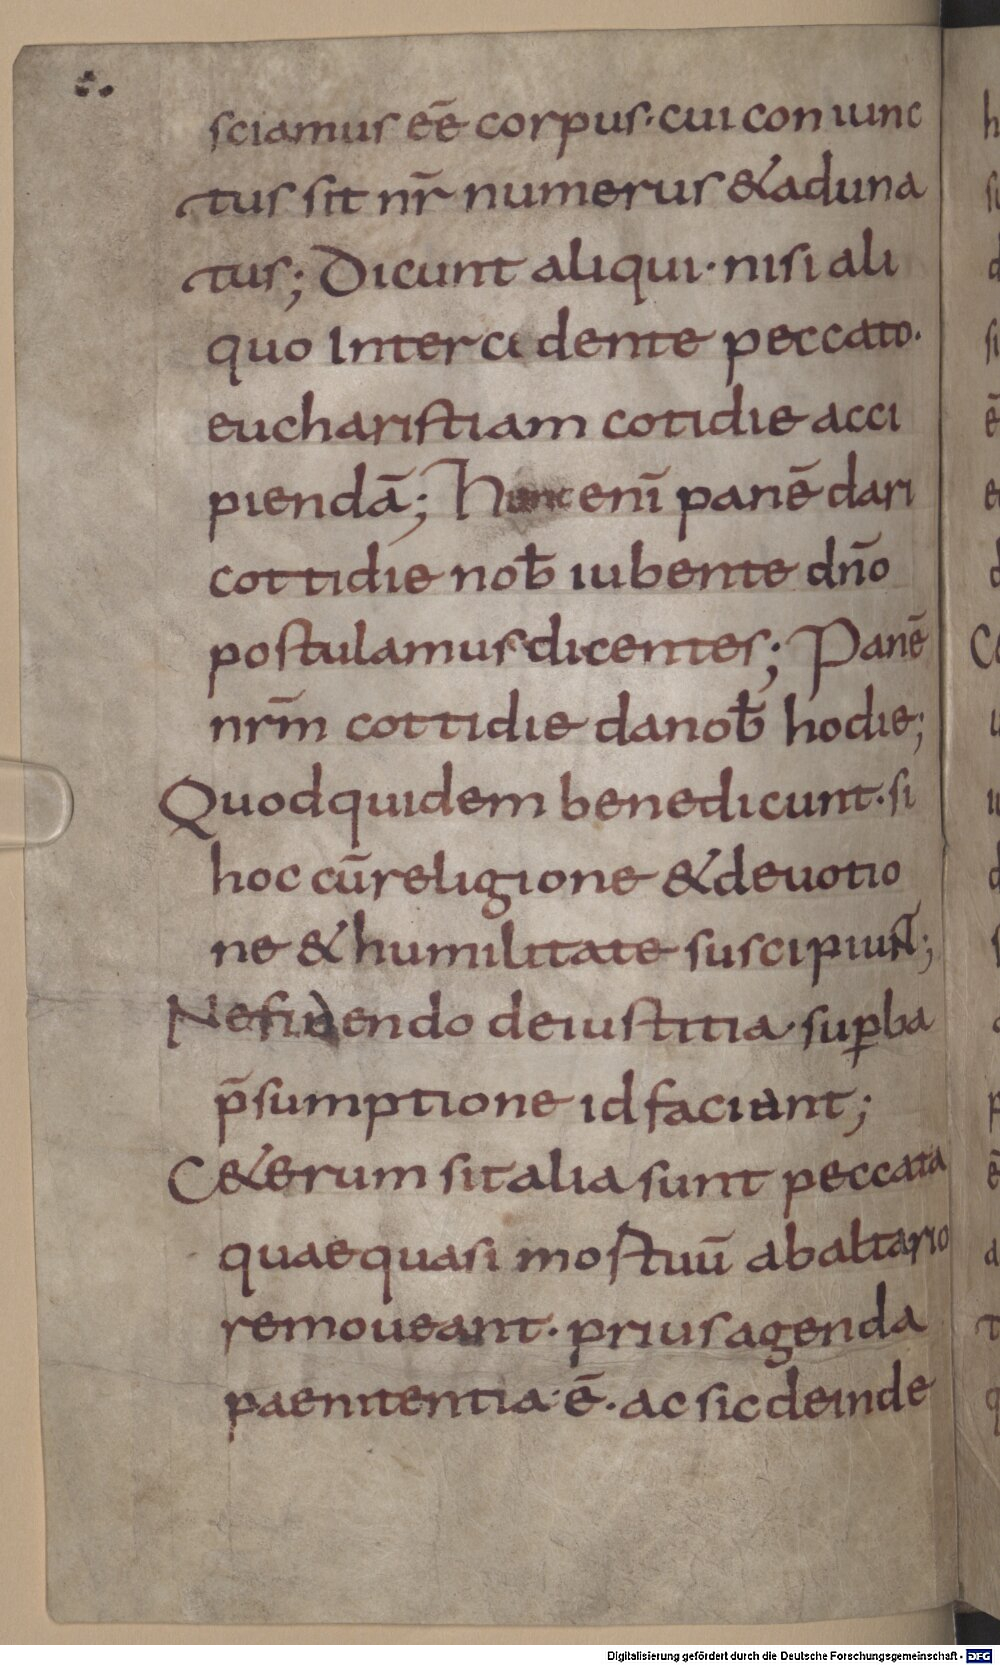 sciamus eē corpus· cui coniunc
tus sit nr̄ numerus & aduna
tus; Dicunt aliqui· nisi ali
quo intercedente peccato·
eucharistiam cotidie acci
piendā; Hunc enī panē dari
cottidie nob̄ iubente dn̄o
postulamus dicentes; Panē
nr̄m cottidie da nob̄ hodie;
Quod quidem benedicunt· si
hoc cū religione & deuotio
ne & humilitate suscipiunt;
Ne fidendo de iustitia· suꝑba
p̄sumptione id faciant;
C&erum si talia sunt peccata
quae quasi mostuū ab altario
remoueant· prius agenda
paenitentia ē· ac sic deinde
Digitalisierung gefördert durch die Deutsche Forschungsgemeinschaft - DFG